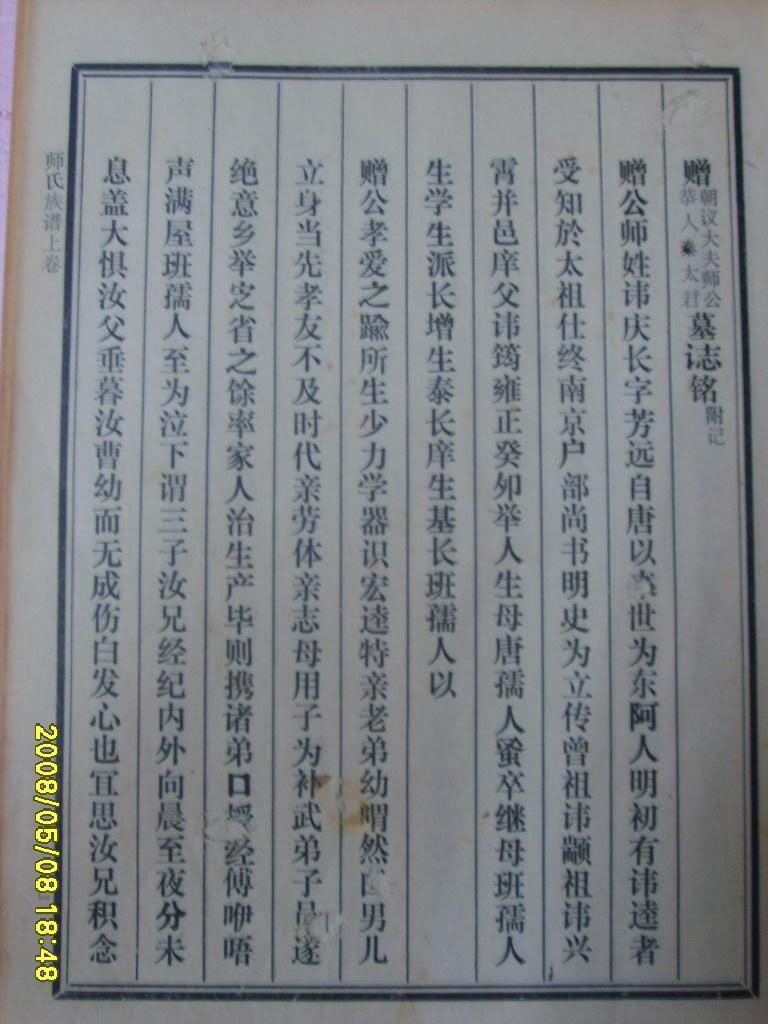 赠朝议大夫师公恭人秦太君墓志铭附记
赠公师姓讳庆长字芳远自唐以世为东阿人明初有讳逵者
受知於太祖仕终南京户部尚书明史为立传曾祖讳颛祖讳兴
霄并邑庠父讳筠雍正癸卯举人生母唐孺人蚤卒继母班孺人
生学生派长增生泰长庠生基长班孺人以
赠公孝爱之踰所生少力学器识宏逵特亲老弟幼喟然曰男儿
立身当先孝友不及时代亲劳体亲志母用子为补武弟子员遂
绝意乡举定省之馀率家人治生产毕则携诸弟口授经傅咿唔
声满屋班孺人至为泣下谓三子汝兄经纪内外向晨至夜分未
息盖大惧汝父垂暮汝曹幼而无成伤白发心也宜思汝兄积念
师氏族谱上卷
2008/05/08 18:48